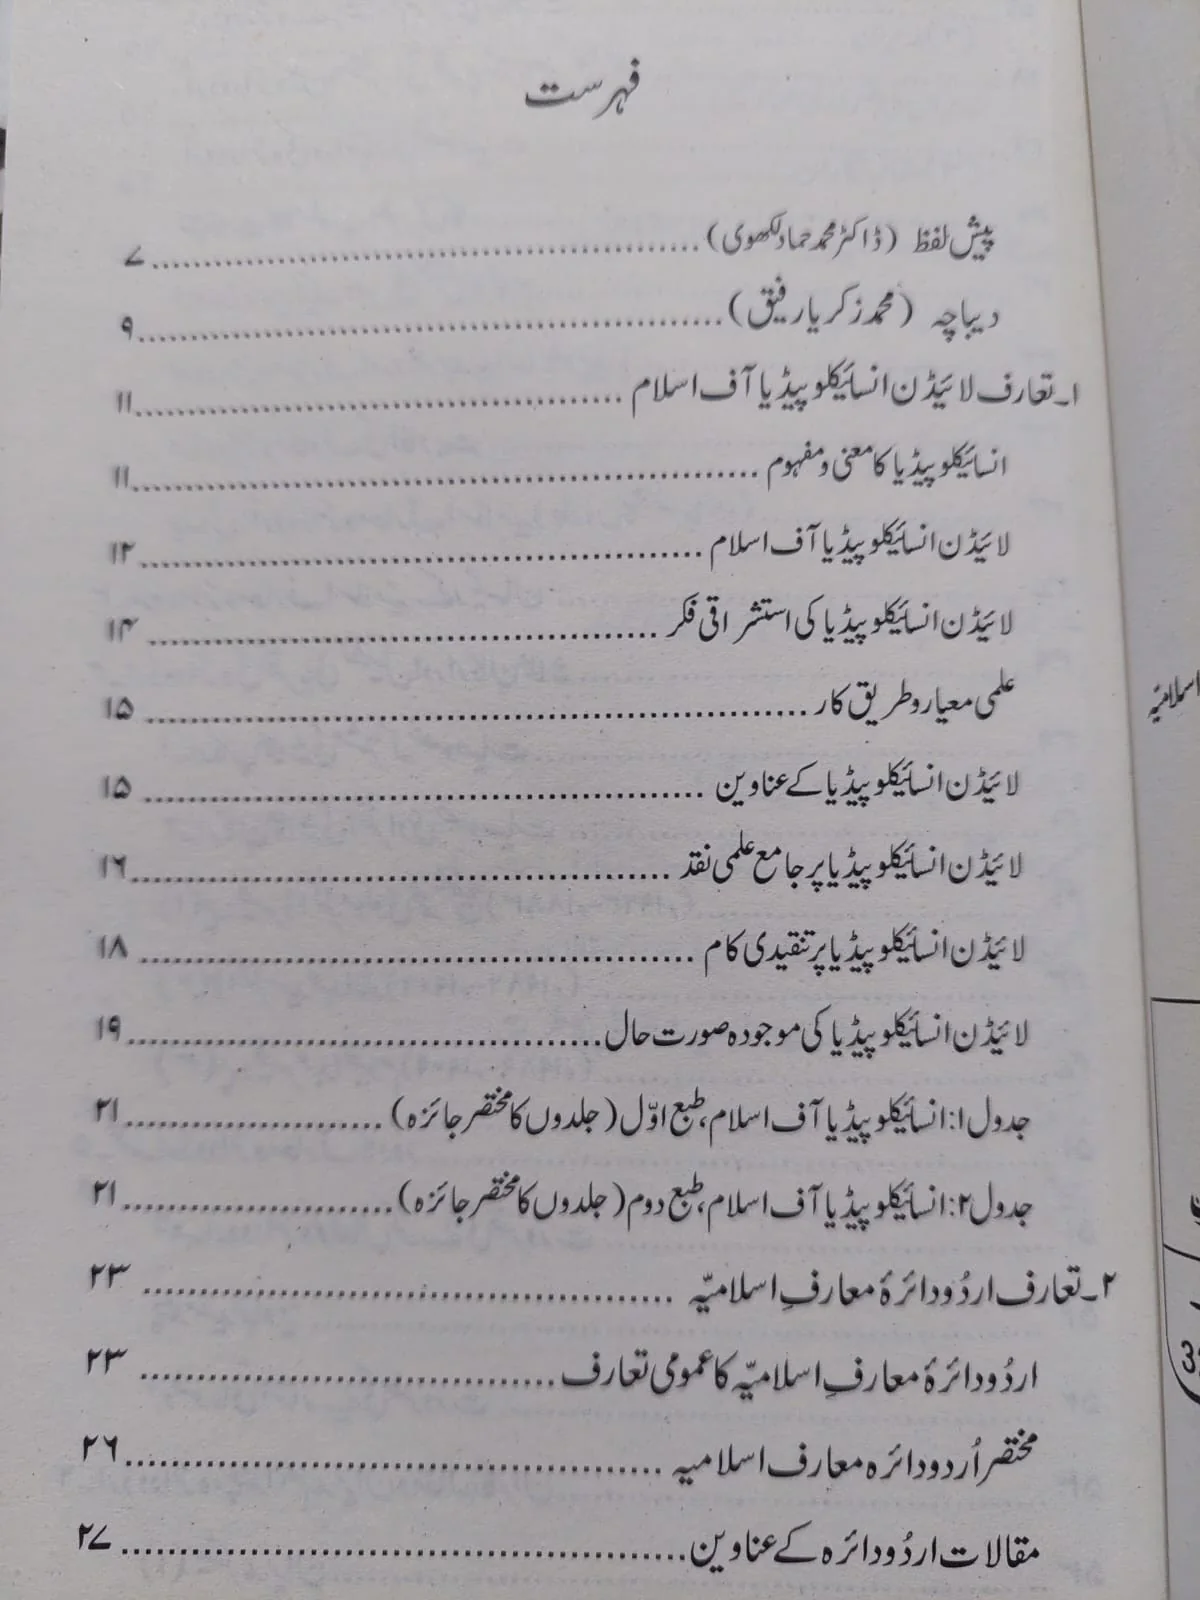 فہرست
پیش لفظ (ڈاکٹر محمد حماد لکھوی)............................................۷
دیباچہ (محمد زکریا رفیق)............................................۹
۱۔تعارف لائیڈن انسائیکلوپیڈیا آف اسلام............................................۱۱
انسائیکلوپیڈیا کا معنی و مفہوم............................................۱۱
لائیڈن انسائیکلوپیڈیا آف اسلام............................................۱۲
لائیڈن انسائیکلوپیڈیا کی استشراقی فکر............................................۱۴
علمی معیار و طریق کار............................................۱۵
لائیڈن انسائیکلوپیڈیا کے عناوین............................................۱۵
لائیڈن انسائیکلوپیڈیا پر جامع علمی نقد............................................۱۶
لائیڈن انسائیکلوپیڈیا پر تنقیدی کام............................................۱۸
لائیڈن انسائیکلوپیڈیا کی موجودہ صورت حال............................................۱۹
جدول ۱: انسائیکلوپیڈیا آف اسلام، طبع اوّل (جلدوں کا مختصر جائزہ)......................۲۱
جدول ۲: انسائیکلوپیڈیا آف اسلام، طبع دوم (جلدوں کا مختصر جائزہ)......................۲۱
۲۔تعارف اردُو دائرۂ معارفِ اسلامیّہ............................................۲۳
اردُو دائرۂ معارفِ اسلامیّہ کا عمومی تعارف............................................۲۳
مختصر اُردو دائرہ معارف اسلامیہ............................................۲۶
مقالات اردُو دائرہ کے عناوین............................................۲۷
اسلامیّہ